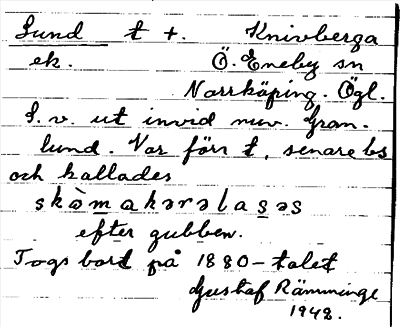 Lund t +. Knivberga
ek. Ö. Eneby sn
Norrköping. Ögl.
L. v. ut invid nuv. Gran-
lund. Var förr t, senare bs
och kallades
skòmakərəlasəs
efter gubben.
Togs bort på 1880-talet
Gustaf Rämminge
1942.